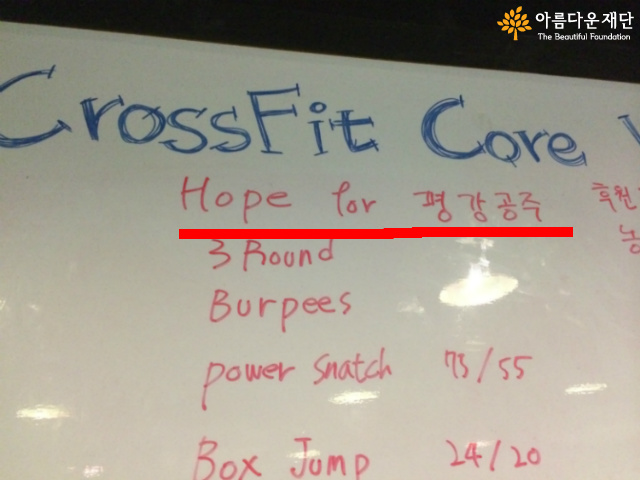 아름다운재단
The Beautiful Foundation
CrossFit Core
Hope for 평강공주
후원
3 Round
Burpees
power snatch 73/55
Box Jump 24/20